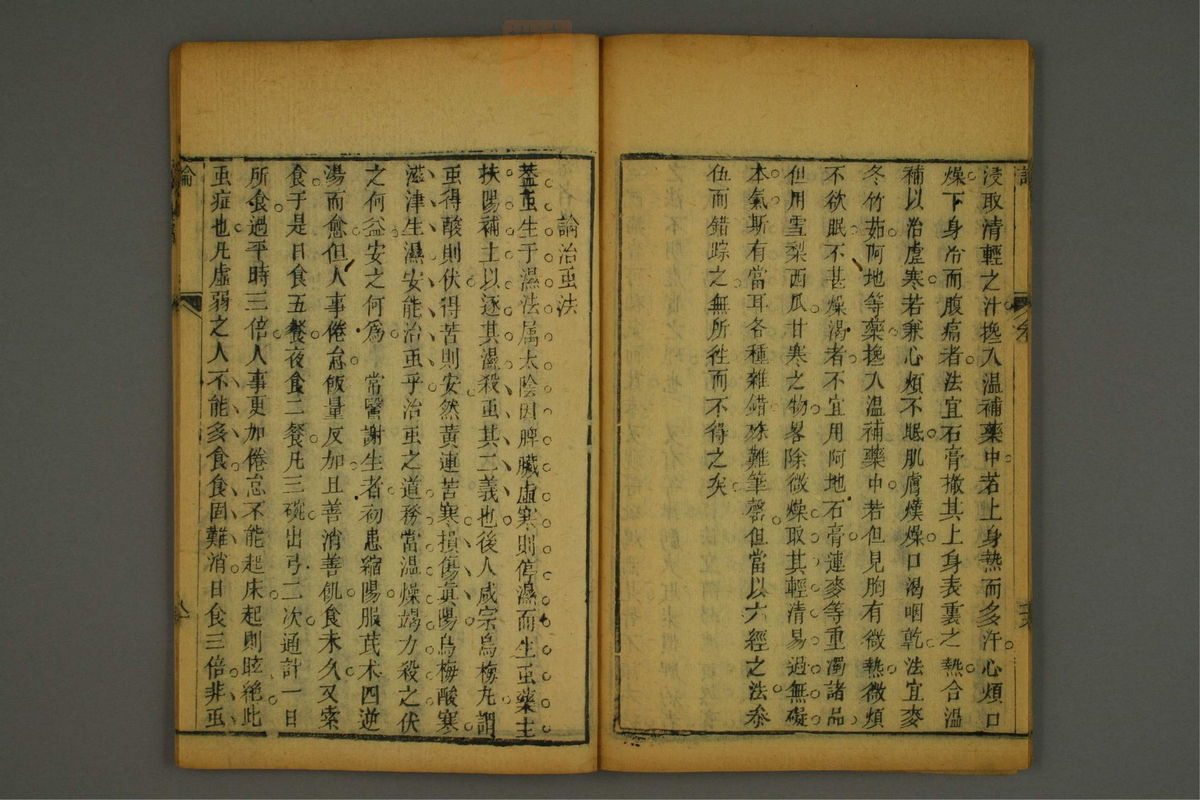 浸取清輕之汁攙入溫補藥中若上身熱而多汗心煩口
燥下身冷而腹痛者法宜石膏撤其上身表裏之熱合溫
補以治虛寒若兼心煩不眠肌膚熯燥口渴咽乾法宜麥
冬竹茹阿地等藥攙入溫補藥中若但見胸有微熱微煩
不欲眠不甚燥渴者不宜用阿地石膏連麥等重濁諸品
但用雪梨西瓜甘寒之物畧除微燥取其輕清易過無礙
本氣斯有當耳各種雜錯殊難筆罄但當以六經之法叅
伍而錯踪之無所徃而不得之矣
論治䖝法
葢䖝生于濕法属太陰因脾臟虛寒則停濕而生䖝藥主
扶陽補土以逐其濕殺䖝其二義也後人咸宗烏梅丸謂
䖝得酸則伏得苦則安然黃連苦寒損傷眞陽烏梅酸寒
滋津生濕安能治䖝乎治䖝之道務當溫燥竭力殺之伏
之何益安之何為　常醫謝生者初患縮陽服芪朮四逆
湯而愈但人事倦怠飯量反加且善消善飢食未久又索
食于是日食五餐夜食二餐凡三碗出弓二次通計一日
所食過平時三倍人事更加倦怠不能起床起則眩絕此
䖝症也凡虛弱之人不能多食食固難消日食三倍非䖝